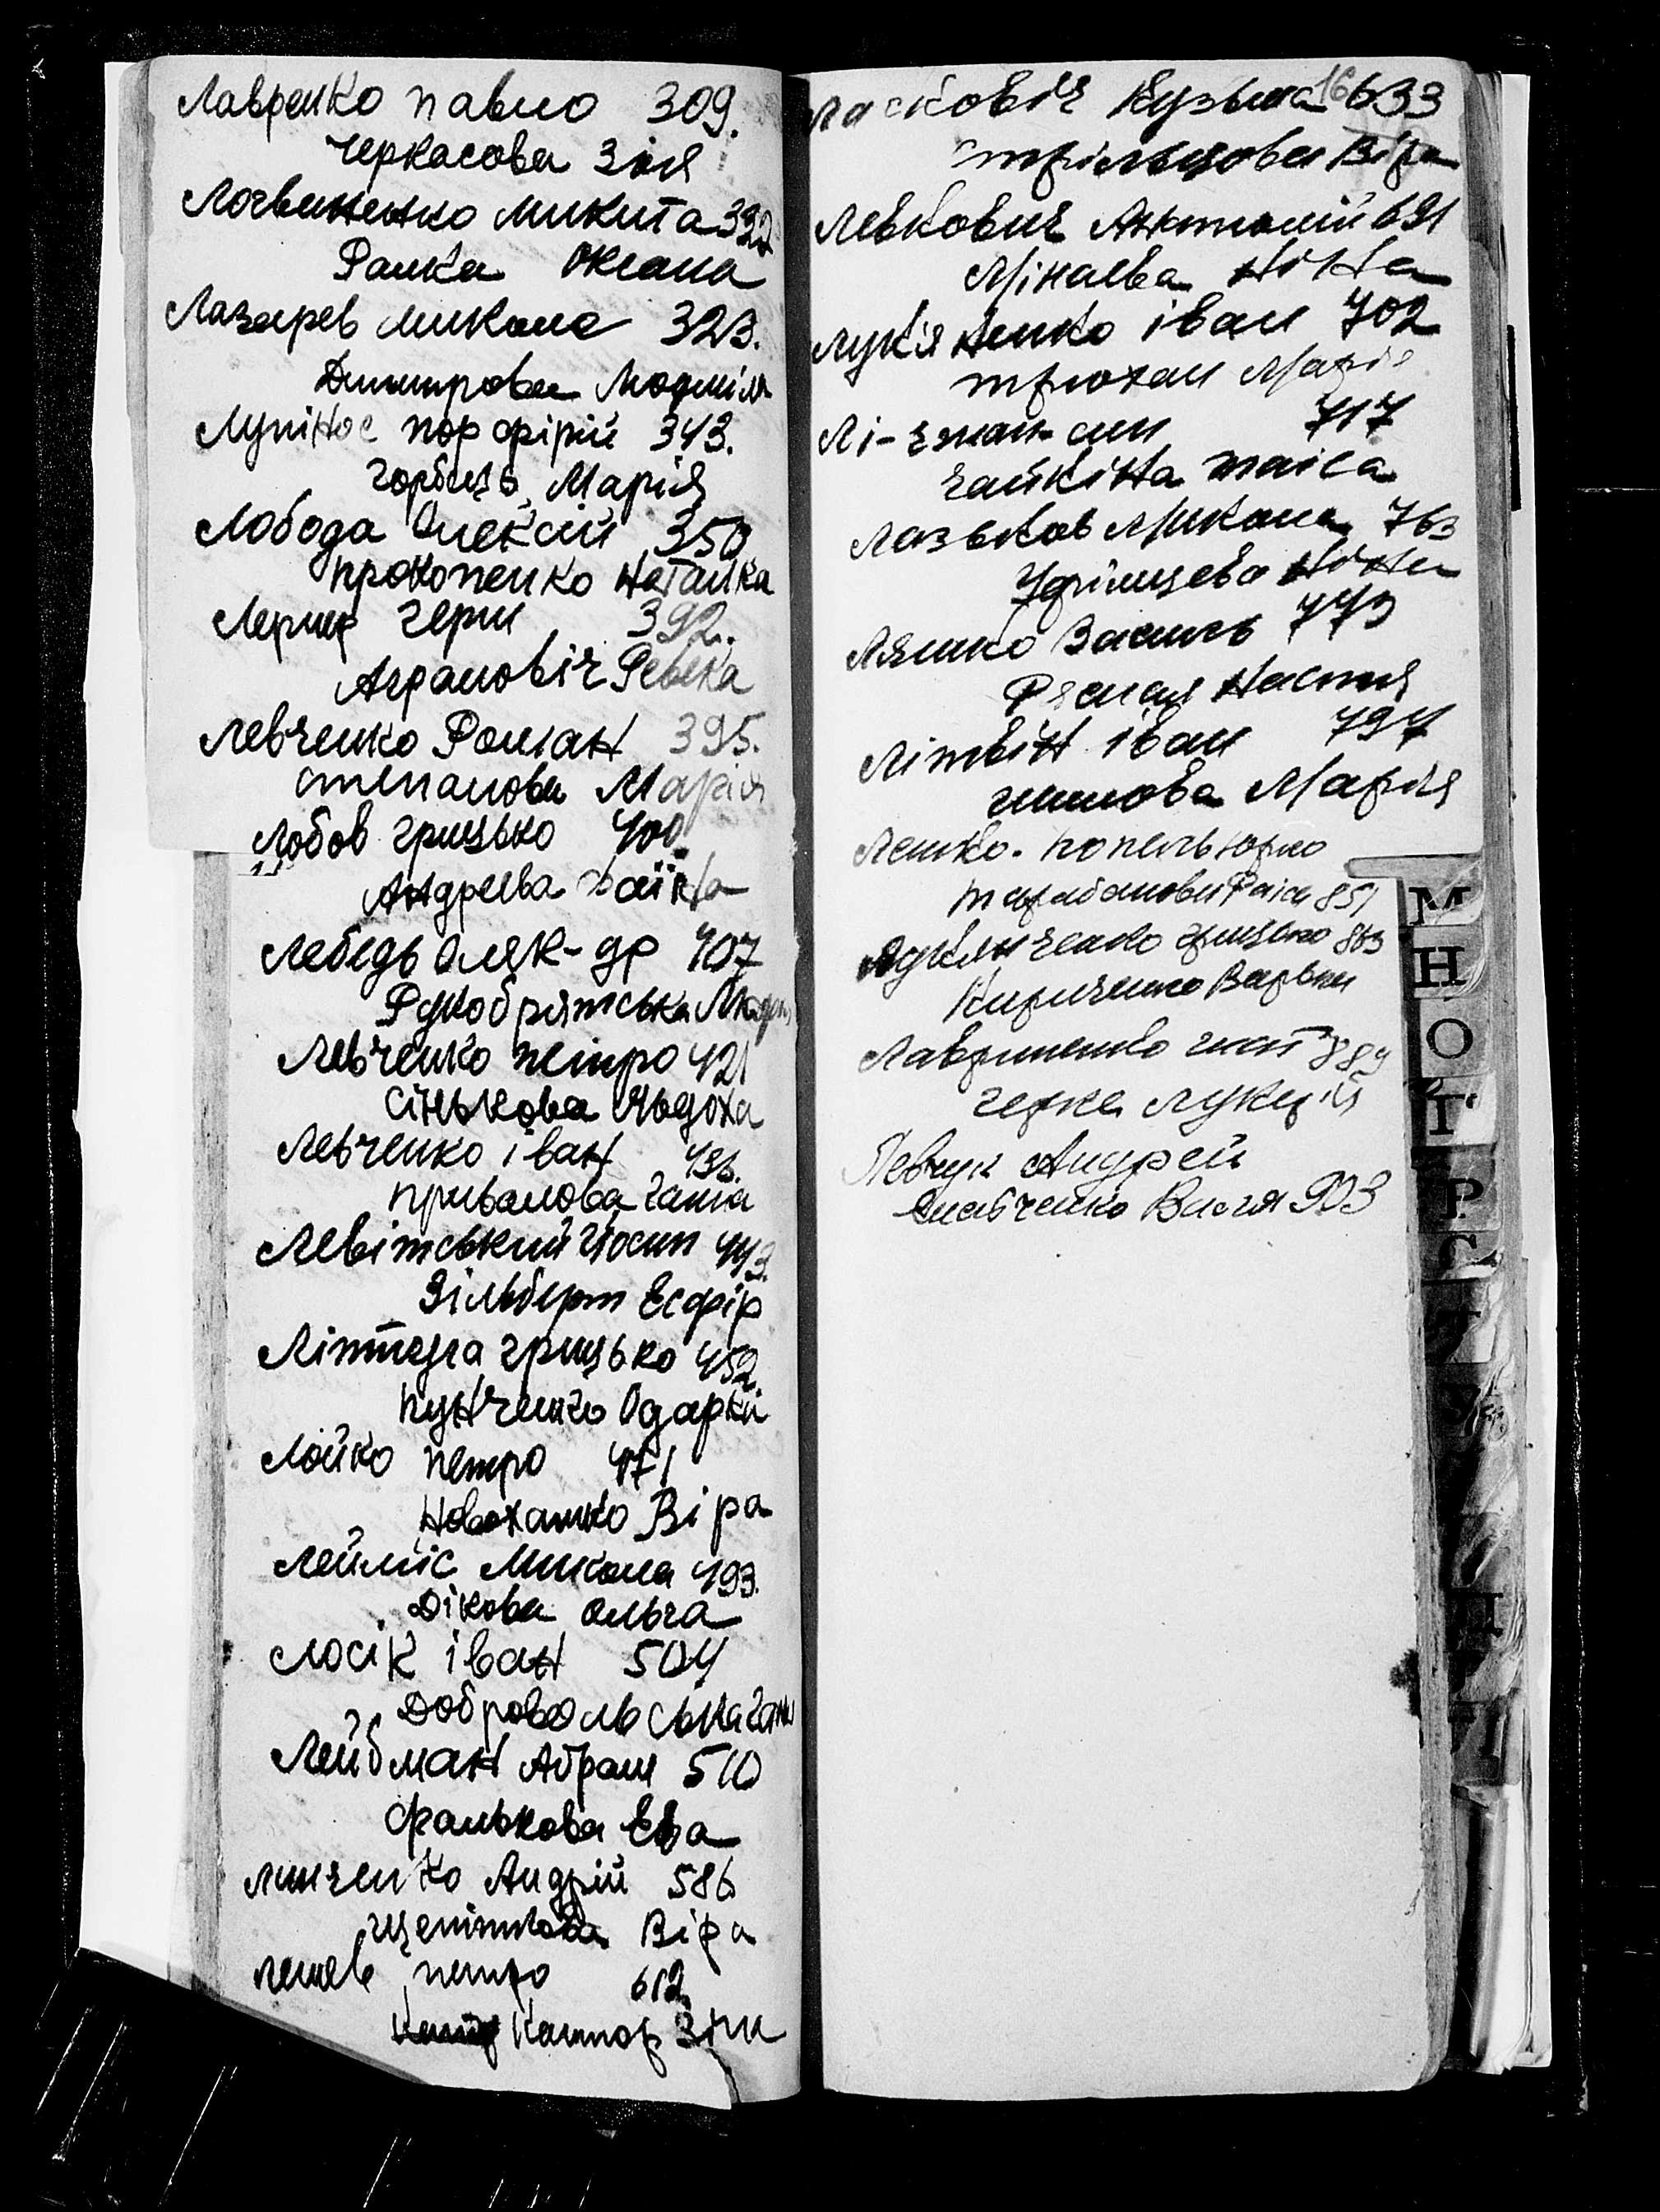 Лавренко Павло 309.
Черкасова Зоя
Логвиненко Микита 322
Ралка Оксана
Лазарев Микола 323.
Дмитрова Людміла
Лупінос Порфірій 343.
Горбець, Марія
Лобода Олексій 350
Прокопенко Наталка
Лернер Герш 392.
Аграновіч Ревека
Левченко Роман 395.
Степанова Марія
Лобов Грицько 400.
Андреєва
Лебедь Оляк-др 407
Рукобрятська
Левченко Петро 421
Сінькова Явдоха
Левченко Іван 436.
Привалова Ганна
Левітський Йосип 443.
Зільберт Есфір
Грицько 452.
Кунченко Одарка
Лойко Петро 471
Новохатько Віра
Лейміс Микола 493.
Дікова Ольга
Лосік Іван 504
Добровольська Ганна
Лейбман Абрам 510
Фалькова Ева
Линченко Андрій 586
Щепіткова Віра
Петро 612.
Зіна
Ласковіч Кузьма 633
16
Стрільцова Віра
Левкович Антоній 691
Мінаева Ніна
Лук'яненко Іван 702
Трюхан Марія
Лі- 717
Чайкіна Таїса
Лазьков Микола 763
Уфімцева Ніна
Ляшко Василь 773
Рясная Настя
Літвін Іван 797
Титова Марія
Лешко-Попель Юфко
Тарабанова Раіса 851
Грицько 863
Кириченко Варька
Лавриненко Гнат 889
Черке Лукерія
Левчук Андрей
Славченко Васля 903
М
Н
О
П
Р
С
Т